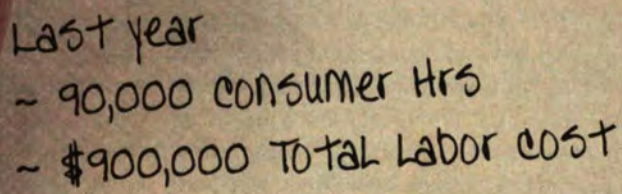 Last year
~ 90,000 consumer Hrs
~ $900,000 Total Labor cost